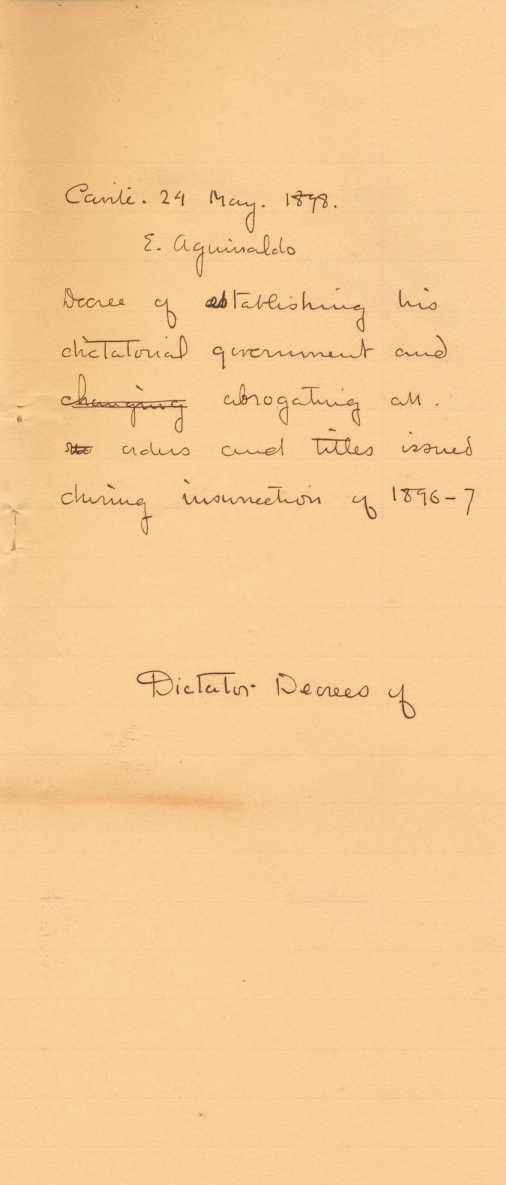 Cavite. 24 May. 1898.
E. Aguinaldo
Decree of establishing his
dictatorial government and
changing abrogating all.
orders and titles issued
during insurrection of 1896-7
Dictator Decrees of